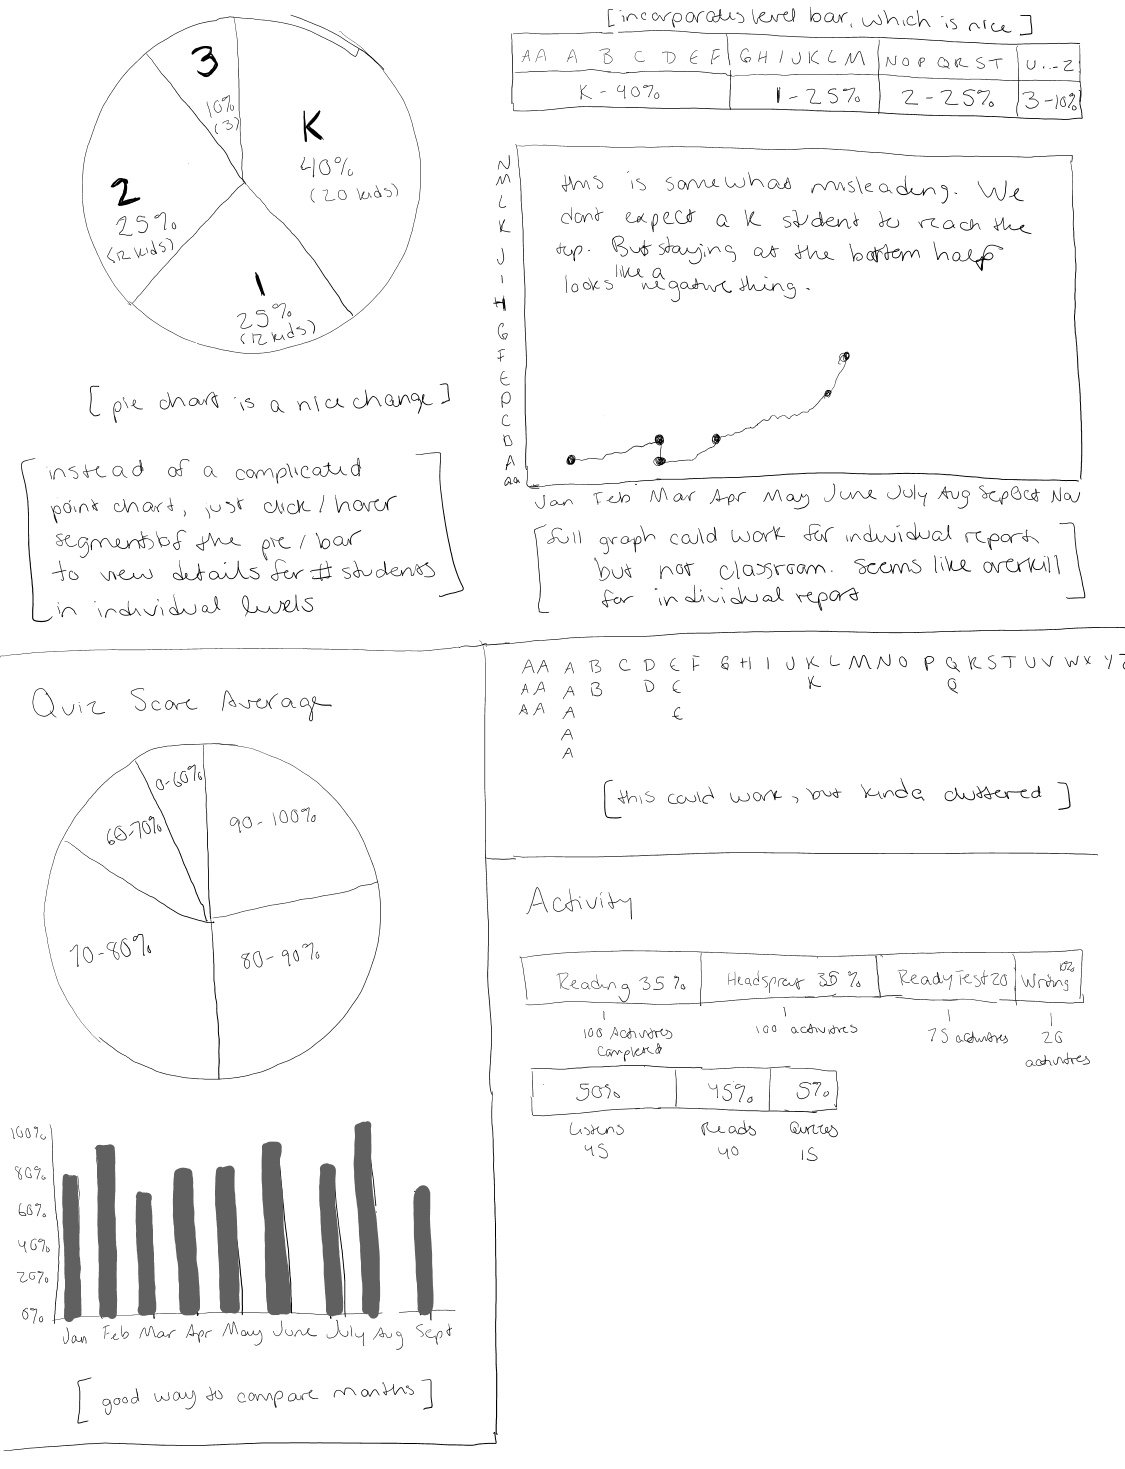 3
10%
(3)
K
40%
(20 kids)
2
25%
(12 kids)
1
25%
(12 kids)
[pie chart is a nice change]
[instead of a complicated
point chart, just click/hover
segments of the pie/bar
to view details for # students
in individual levels]
[incorporates level bar, which is nice]
AA A B C D E F G H I J K L M N O P Q R S T U...Z
K-40% 1-25% 2-25% 3-10%
N
M
L
K
J
I
H
G
F
E
D
C
B
A
aa
this is somewhat misleading. We
dont expect a K student to reach the
top. But staying at the bottom half
looks like a negative thing.
Jan Feb Mar Apr May June July Aug Sep Oct Nov
[full graph could work for individual report
but not classroom. Seems like overkill
for individual report]
AA A B C D E F G H I J K L M N O P Q R S T U V W X Y Z
AA A B D E K Q
AA A E
A
A
[this could work, but kinda cluttered]
Quiz Score Average
0-60%
60-70%
90-100%
70-80%
80-90%
100%
80%
60%
40%
20%
0%
Jan Feb Mar Apr May June July Aug Sept
[good way to compare months]
Activity
Reading 35% Headsprout 35% ReadyTest 20 Writing 10%
100 Activities
Completed
100 activities
75 activities
20
activities
50% 45% 5%
Listens Reads Quizzes
45 40 15